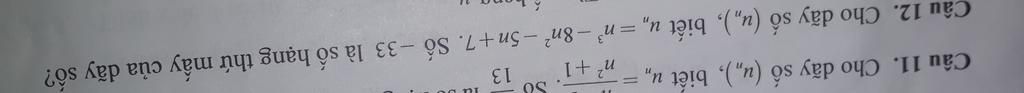 Câu 11. Cho dãy số (uₙ), biết uₙ = / n² + 1. Số / 13
Câu 12. Cho dãy số (uₙ), biết uₙ = n³ − 8n² − 5n + 7. Số −33 là số hạng thứ mấy của dãy số?